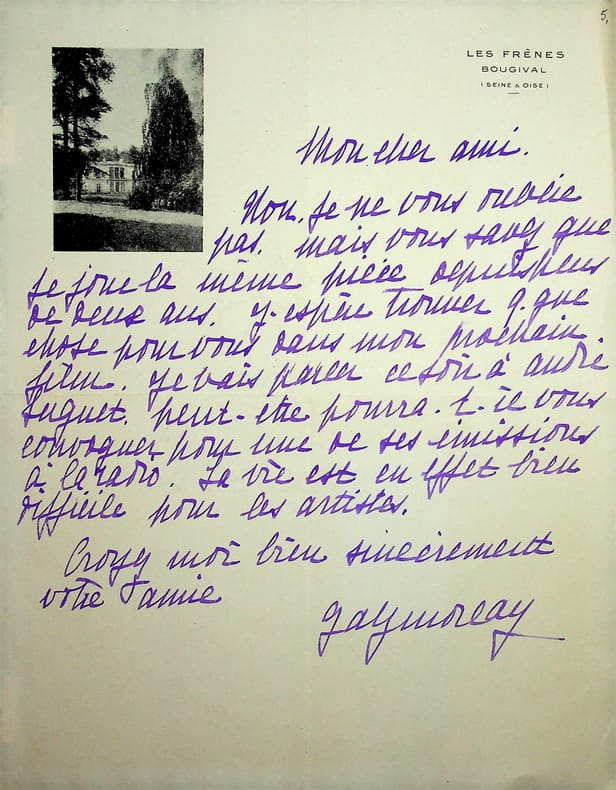 5,
LES FRÊNES
BOUGIVAL
(SEINE & OISE)
Mon cher ami.
Non. Je ne vous oublie
pas. mais vous savez que
je joue la même pièce depuis plus
de deux ans. J'espère trouver q. que
chose pour vous dans mon prochain
film. Je vais parler ce soir à André
Luguet. peut-être pourra-t-il vous
convoquer pour une de ses émissions
à la radio. La vie est en effet bien
difficile pour les artistes.
Croyez moi bien sincèrement
votre amie
Gaby Morlay